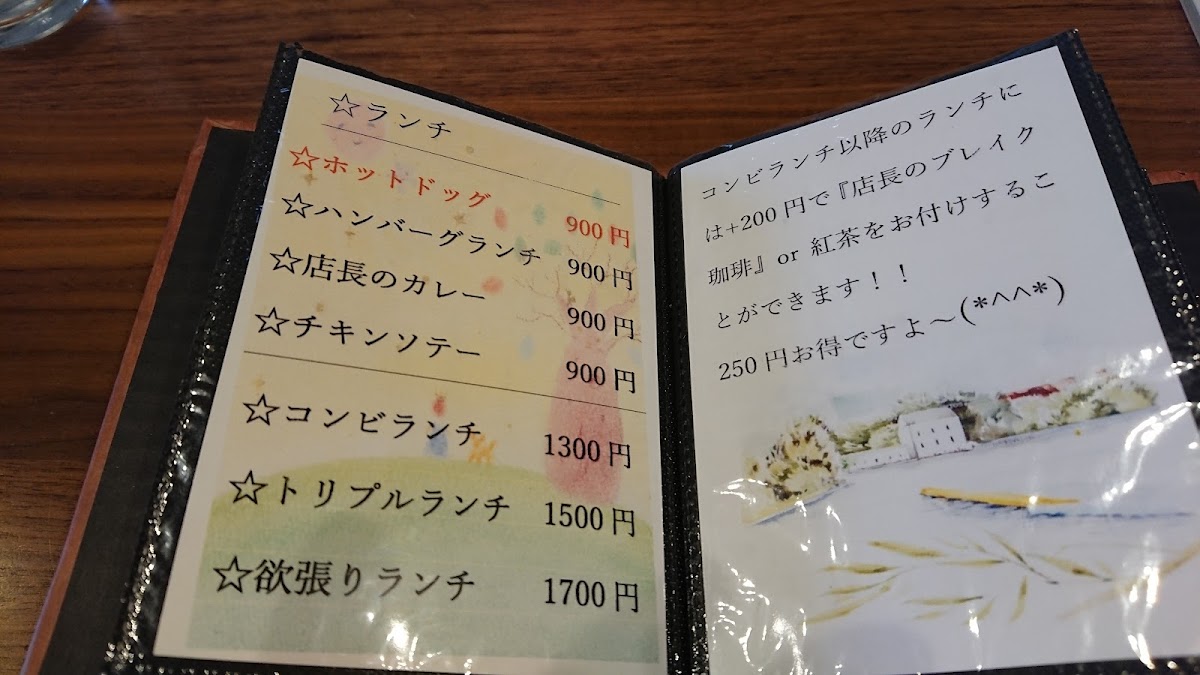 ☆ランチ
☆ホットドッグ 900円
☆ハンバーグランチ 900円
☆店長のカレー 900円
☆チキンソテー 900円
☆コンビランチ 1300円
☆トリプルランチ 1500円
☆欲張りランチ 1700円
コンビランチ以降のランチに
は+200円で『店長のブレイク
珈琲』or 紅茶をお付けするこ
とができます！！
250円お得ですよ～(*^^*)